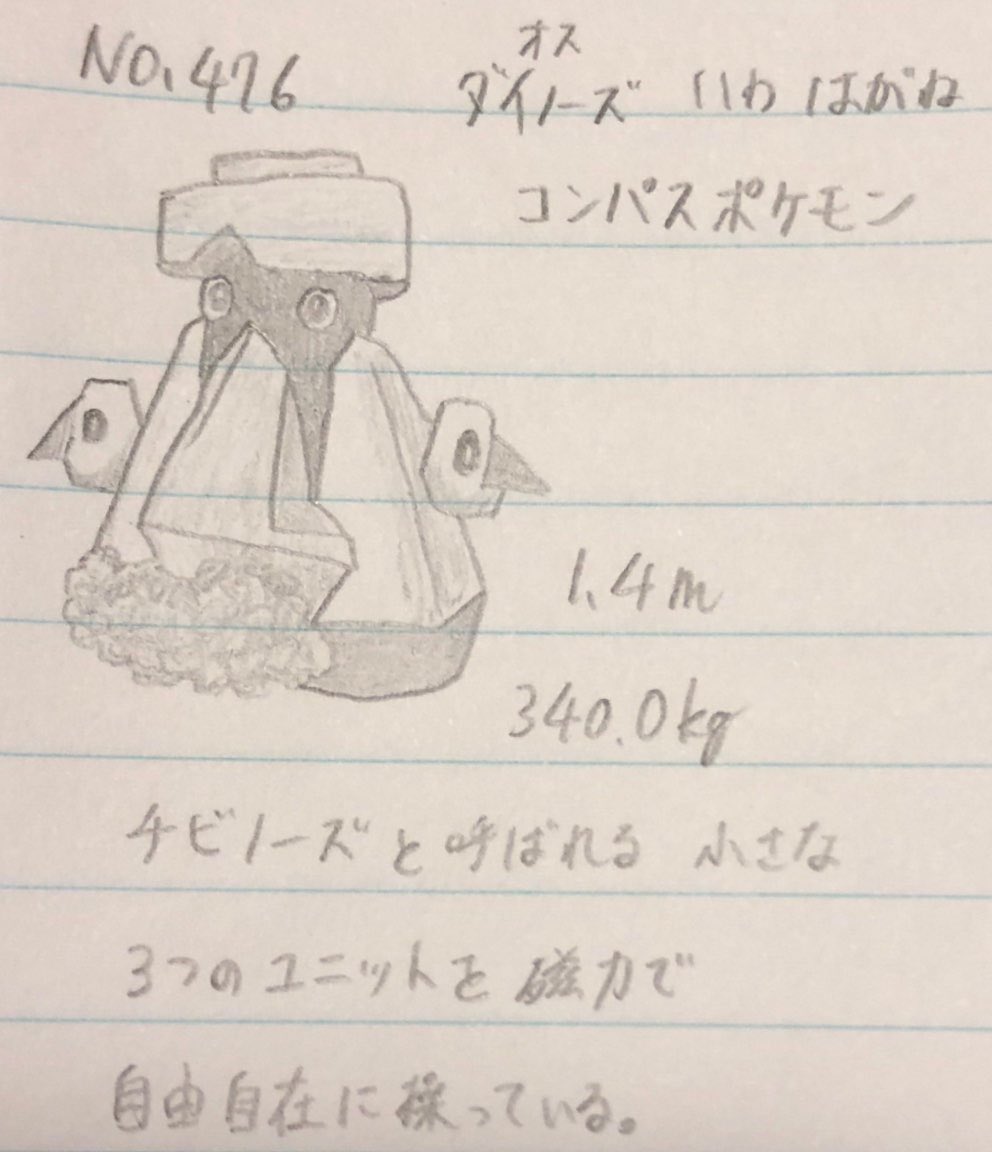 No.476
オス
ダイノーズ いわ はがね
コンパスポケモン
1.4m
340.0kg
チビノーズと呼ばれる 小さな
3つのユニットを 磁力で
自由自在に操っている。